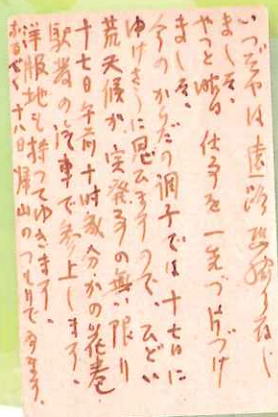 いつぞやは遠路
ました。
やっと昨日仕事を一先づ片づけ
ました。
今のからだの調子では十七日に
ゆけさうに思ひますので、ひどい
荒天候が突発等の無い限り
十七日午前十時幾分かの花巻
駅着の汽車で参上します。
洋服地も持ってゆきます。
十八日帰山のつもりであます。